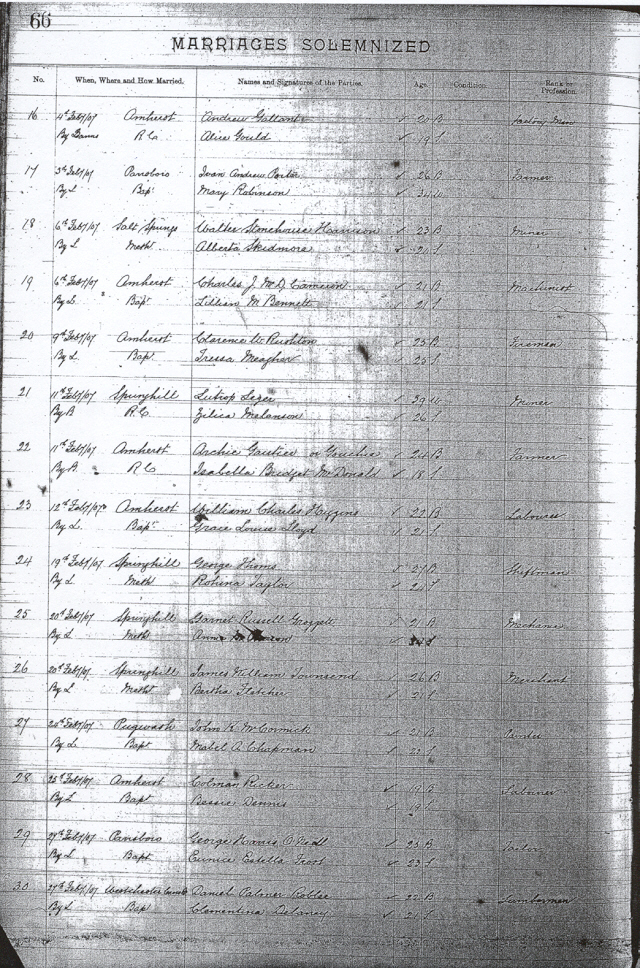 66
MARRIAGES SOLEMNIZED
No. When, Where and How Married. Names and Signatures of the Parties. Age. Condition. Rank or Profession.
16 4th Feby/07 Amherst Andrew Gallant 20 B Factory Man
By Banns R.C. Alice Gould 19 S
17 5th Feby/07 Parrsboro Ivan Andrew Porter 26 B Farmer
By L Bapt Mary Robinson 34 W
18 6th Feby/07 Salt Springs Walter Stonehouse Harrison 23 B Miner
By L Meth Alberta Skidmore 21 S
19 6th Feby/07 Amherst Charles J. McD. Cameron 21 B Machinist
By L Bapt Lillian M Bennett 21 S
20 9th Feby/07 Amherst Clarence W Rushton 25 B Fireman
By L Bapt Tressa Meagher 25 S
21 11th Feby/07 Springhill Leger 39 W Miner
By B R.C. Zilica Melanson 26 S
22 11th Feby/07 Amherst Archie Gautier or 24 B Farmer
By B R C Isabella Bridget McDonald 18 S
23 12th Feby/07 Amherst William Charles Higgins 22 B Labourer
By L. Bapt Grace Louise Lloyd 21 S
24 19th Feby/07 Springhill George Thoms 27 B Shiftman
By L Meth Robina Taylor 21 S
25 20th Feby/07 Springhill Garnet Russell 21 B Mechanic
By L Meth Anna
26 20th Feby/07 Springhill James William Townsend 26 B Merchant
By L Metht Bertha Fletcher 21 S
27 Feby/07 Pugwash John K McCormick 21 B
By L Bapt Mabel A Chapman 22 S
28 25th Feby/07 Amherst Colman Ricker 19 B Laborer
By L Bapt Bessie Dennis 19 S
29 27th Feby/07 Parrsboro George 25 B
By L Bapt Eunice Estella Frost 23 S
30 27th Feby/07 Westchester Daniel Palmer Roblee 22 B Lumberman
By L Bap Clementina Delaney 21 S